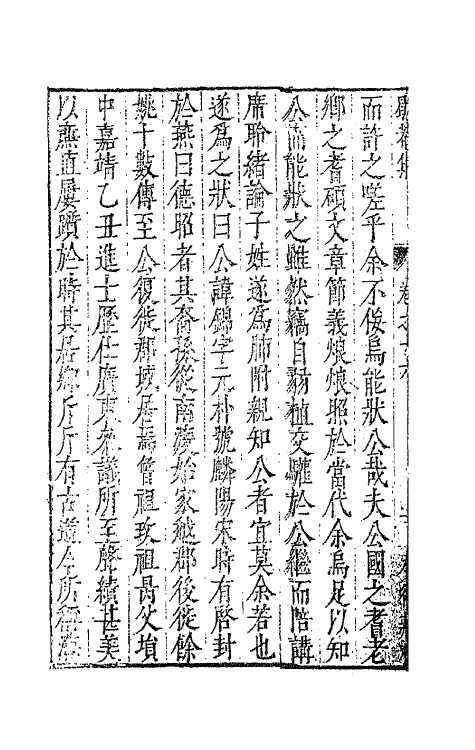 歇菴集 卷之十六
而許之嗟乎余不佞烏能狀公哉夫公國之耆老
鄉之耆碩文章節義烺烺照於當代余烏足以知
公而能狀之雖然竊自韶植交驩於公繼而階講
席聆緒論子姓遂為肺附親知公者宜莫余若也
遂為之狀曰公諱錦字元朴號麟陽宋時有啓封
於燕曰德昭者其裔孫從南渡始家越郡後徙餘
姚十數傳至公復徙郡城居焉曾祖玫祖昺父塤
中嘉靖乙丑進士歷仕廣東參議所至聲績甚美
以熹直屢躓於時其居鄉斤斤有古道今所稱